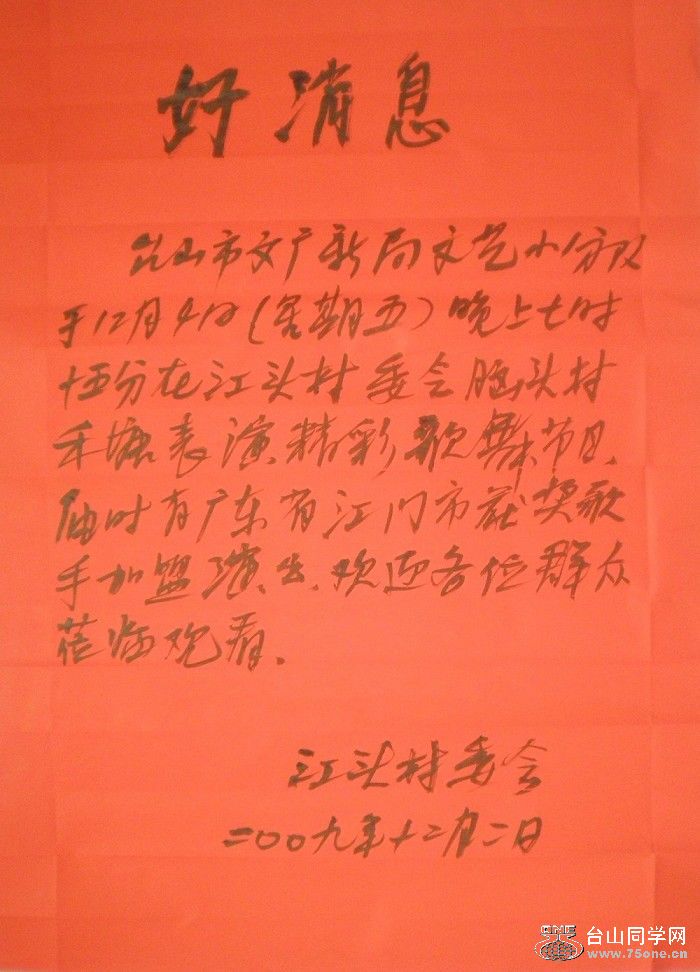 好消息
台山市文广新局文艺小分队
于12月4日(星期五)晚上七时
十五分在江头村委会 头村
禾塘表演精彩歌舞节目,
届时有广东省江门市获奖歌
手加盟演出,欢迎各位群众
莅临观看.
江头村委会
二〇〇九年十二月二日
台山同学网
www.75one.cn